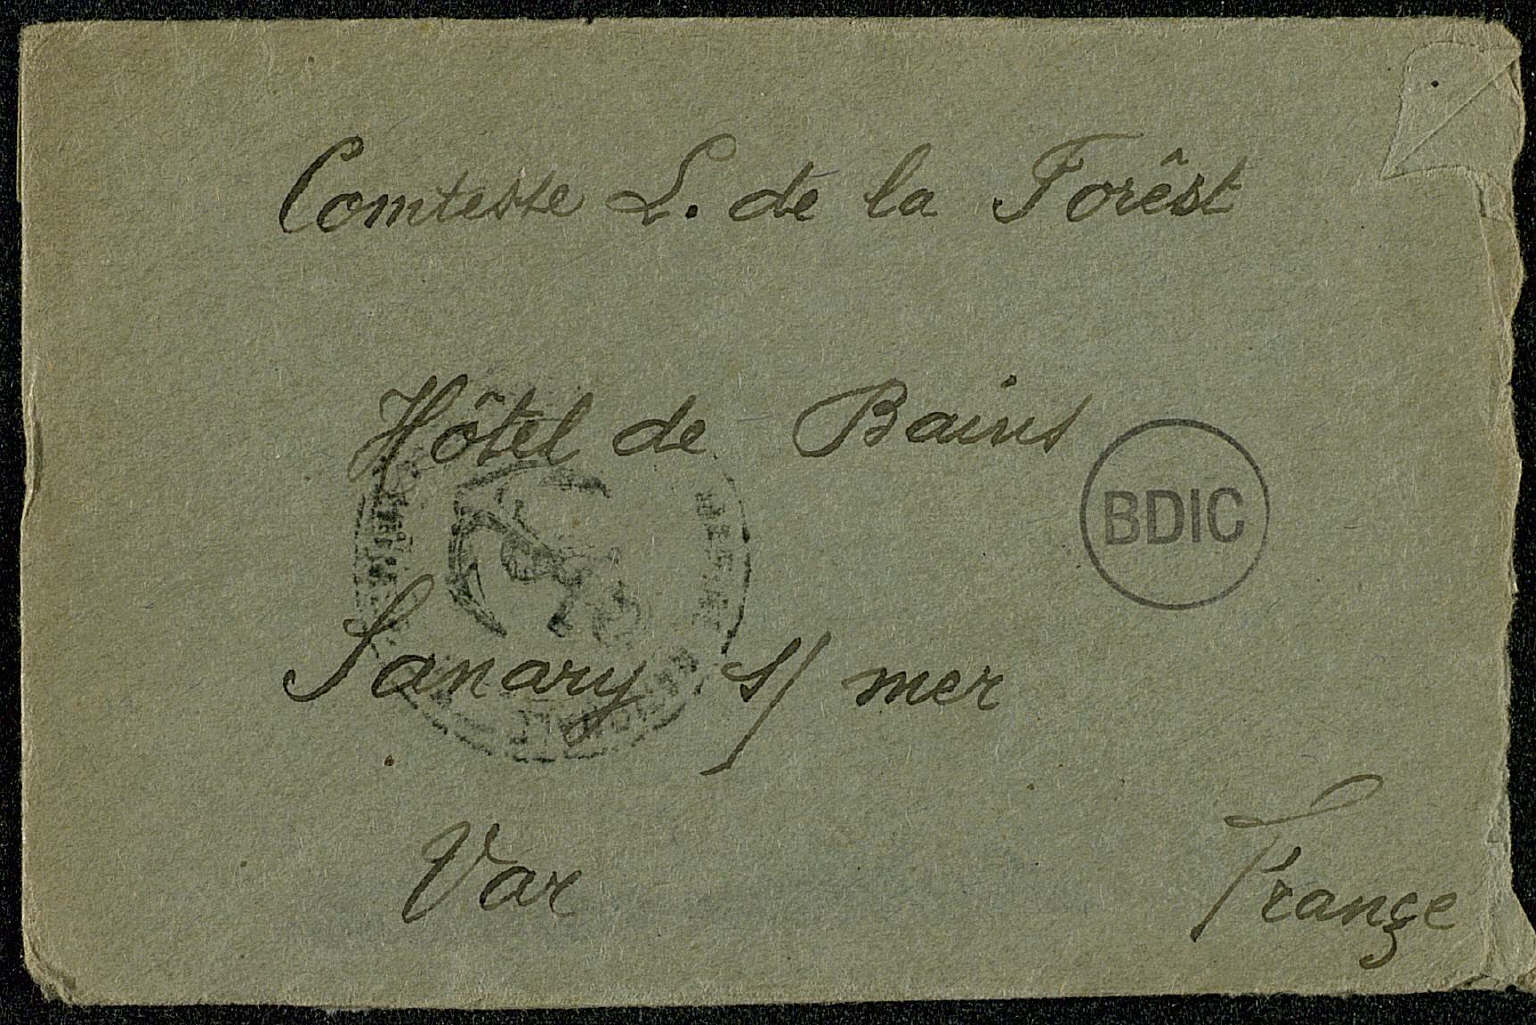 Comtesse L. de la Forêst
Hôtel de Bains
BDIC
Sanary s/ mer
Var
Françe